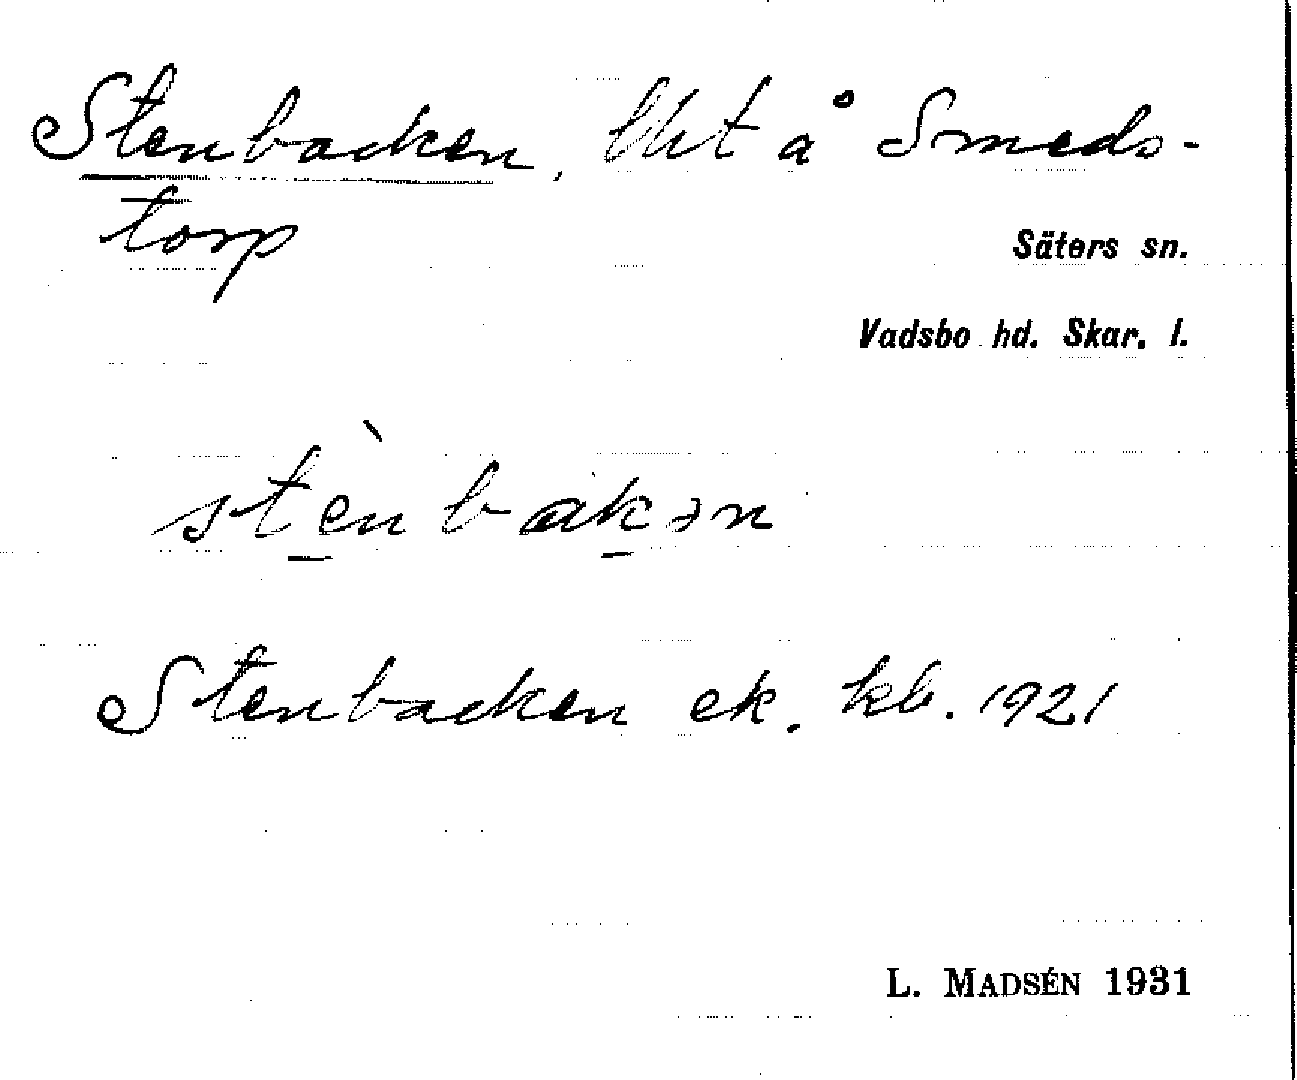 Stenbacken, lht å Smeds-
torp
Säters sn.
Vadsbo hd. Skar. l.
stènbakən
Stenbacken ek. kb. 1921
L. MADSÉN 1931